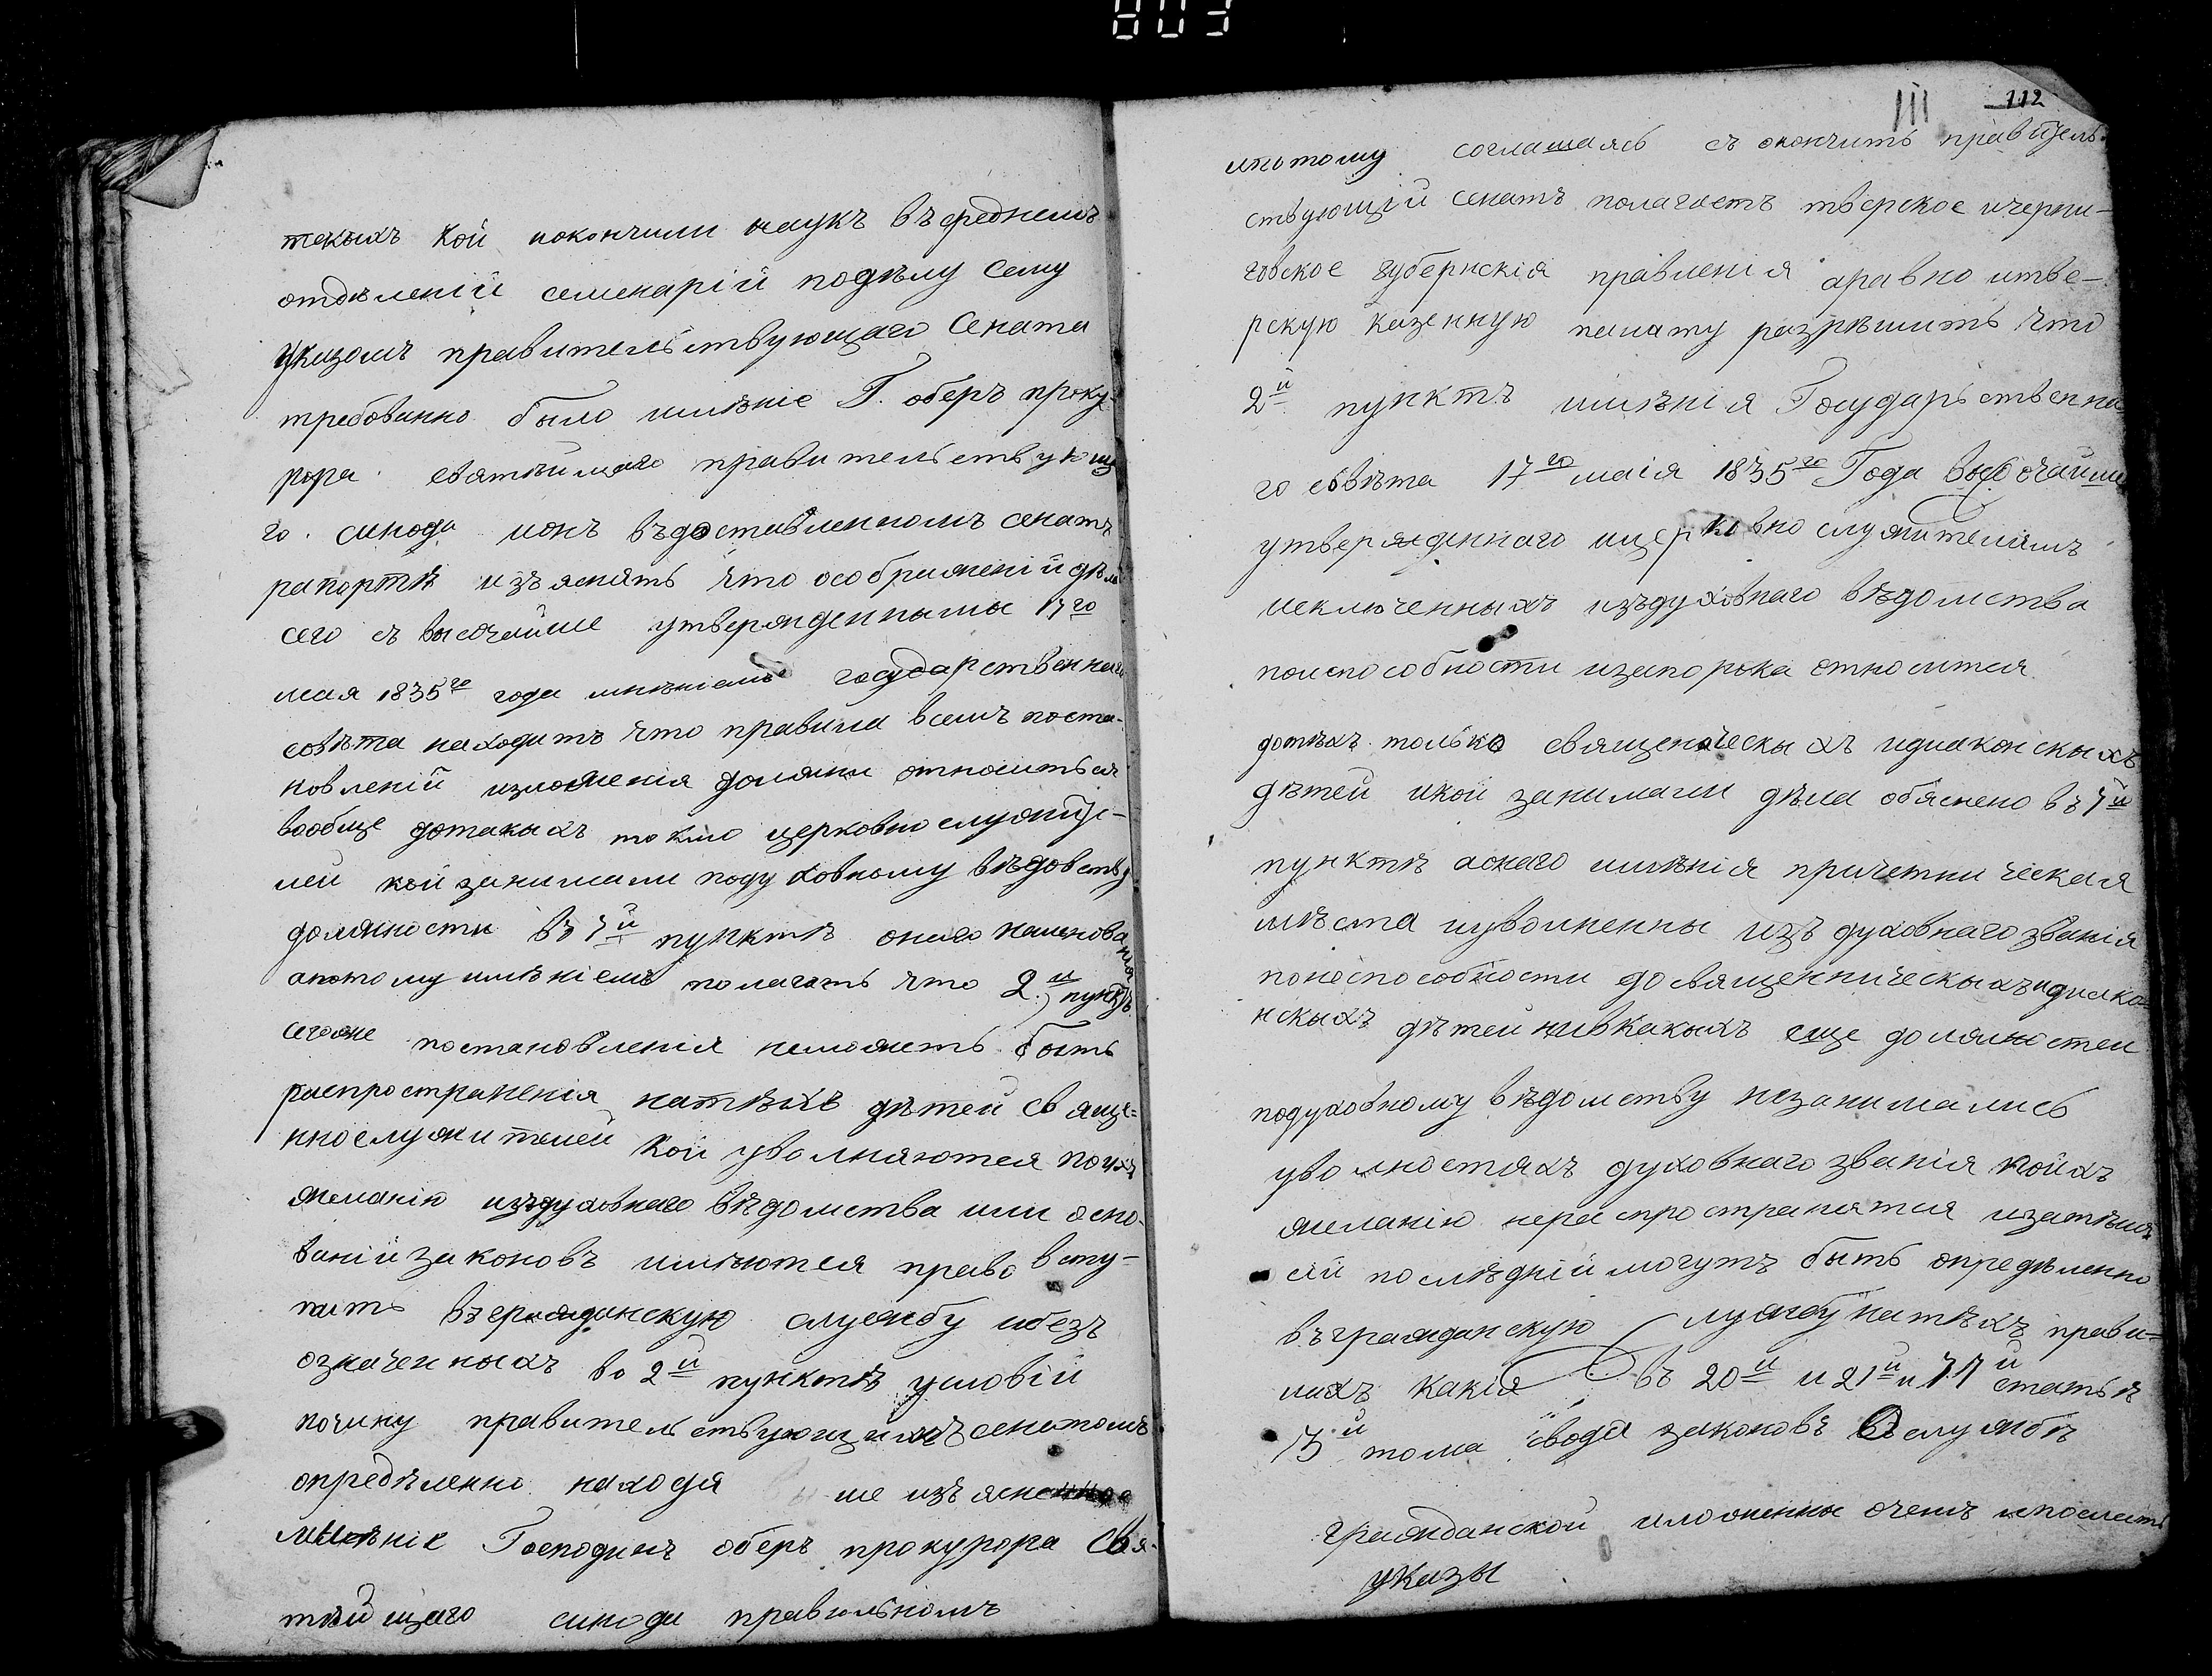 текихъ кой иокончили наукъ въ среднемъ
отдѣленій семенарій подѣлу сему
указомъ правительствующаго Сената
требованно было мнѣніе Г. оберъ проку-
рора святѣйшаго правительствующа
го синода ионъ въ доставленномъ сенатъ
рапортѣ изъяснять чтоосображеній дѣла
сего съ высочайше утвержденнымъ 17го
мая 1835го года мнѣніемъ государственнаго
совѣта находитъ что правила всемъ поста-
новленій изложенія должны относиться
вообще дотакихъ токмо церковно служите-
лей кой занимали подуховному вѣдовству
должности въ 1й пунктѣ онаго наименованія
апотому мнѣніемъ полагать что 2й пунктъ
сегоже постановленія неможетъ быть
распространенія натѣхъ дѣтей свяще=
ннослужителей кой уволняются поихъ
желанію издуховнаго вѣдомства или осно-
ваній законовъ имѣются право всту-
пить въ гражданскую службу ибезъ
означенныхъ во 2й пунктѣ условій
почину правительствующимъ сенатомъ
опредѣленно находя ше изъясненное
мнѣніе Господинъ оберъ прокурора Свя-
тѣйщаго синода правильномъ
111 112
ипотому соглашаясь съ окончить правитель-
ствующій сенатъ полагаетъ тверское ичерни-
говское губернскія правленія аравно итве-
рскую казенную палату разрѣшить что
2й пунктъ мнѣнія Государственна
го совѣта 17го маія 1835го Года высочайше
утвержденнаго ицерковно служителямъ
исключенныхъ издуховнаго вѣдомства
понеспособности изапорока относится
дотѣхъ только священическихъ идиаконскихъ
дѣтей икой занимали дѣла обяснено въ 1й
пунктѣ аснаго мнѣнія причетническая
мѣста иуволненны изъ духовнаго званія
понеспособности до священническихъ идиако-
нскихъ дѣтей нивкакихъ еще должностей
подуховному вѣдомству незанимались
уволностяхъ духовнаго званія койхъ
желанію нераспространятся изатѣмъ
сій послѣдній могутъ быть опредѣленно
въ гражданскую службу натѣхъ прави=
лахъ какія въ 20й и 21й и 77й статьѣ
13й тома свода законовъ Ослужбѣ
гражданской иложенны очемъ ипослать
указы